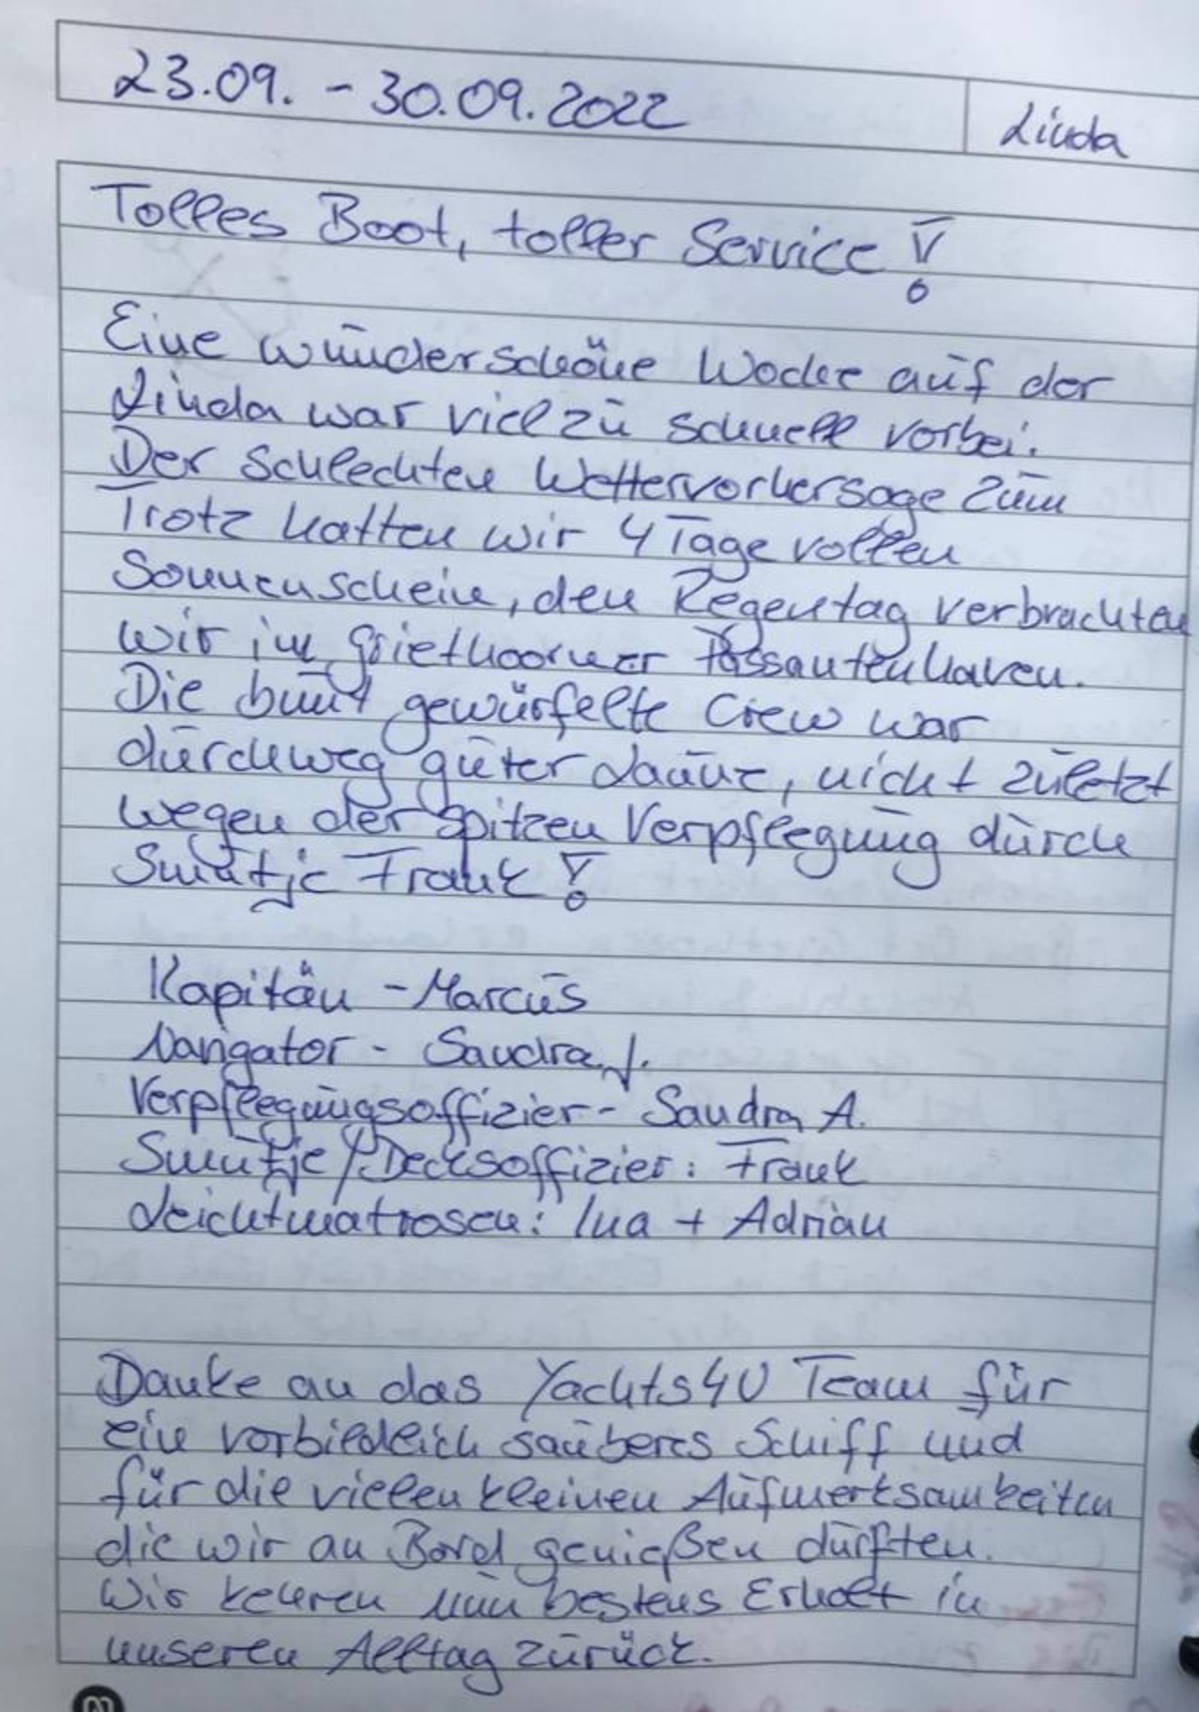 23.09. - 30.09.2022
Linda
Tolles Boot, toller Service!
Eine wunderschöne Woche auf der
Linda war viel zu schnell vorbei.
Der schlechten Wettervorhersage zum
Trotz hatten wir 4 Tage vollen
Sonnenschein, den Regentag verbrachten
wir im Griethoorner Passantenhaven.
Die bunt gewürfelte Crew war
durchweg guter Laune, nicht zuletzt
wegen der spitzen Verpflegung durch
Smutje Frank!
Kapitän - Marcus
Navigator - Sandra J.
Verpflegungsoffizier - Sandra A.
Smutje / Decksoffizier: Frank
Leichtmatrosen: Ina + Adrian
Danke an das Yachts4U Team für
ein vorbildlich sauberes Schiff und
für die vielen kleinen Aufmerksamkeiten
die wir an Bord genießen durften.
Wir kehren nun bestens Erholt in
unseren Alltag zurück.